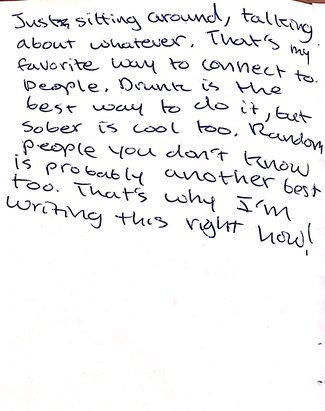 Just sitting around, talking
about whatever. That's my
favorite way to connect to
people. Drunk is the
best way to do it, but
sober is cool too. Random
people you don't know
is probably another best
too. That's why I'm
writing this right now!